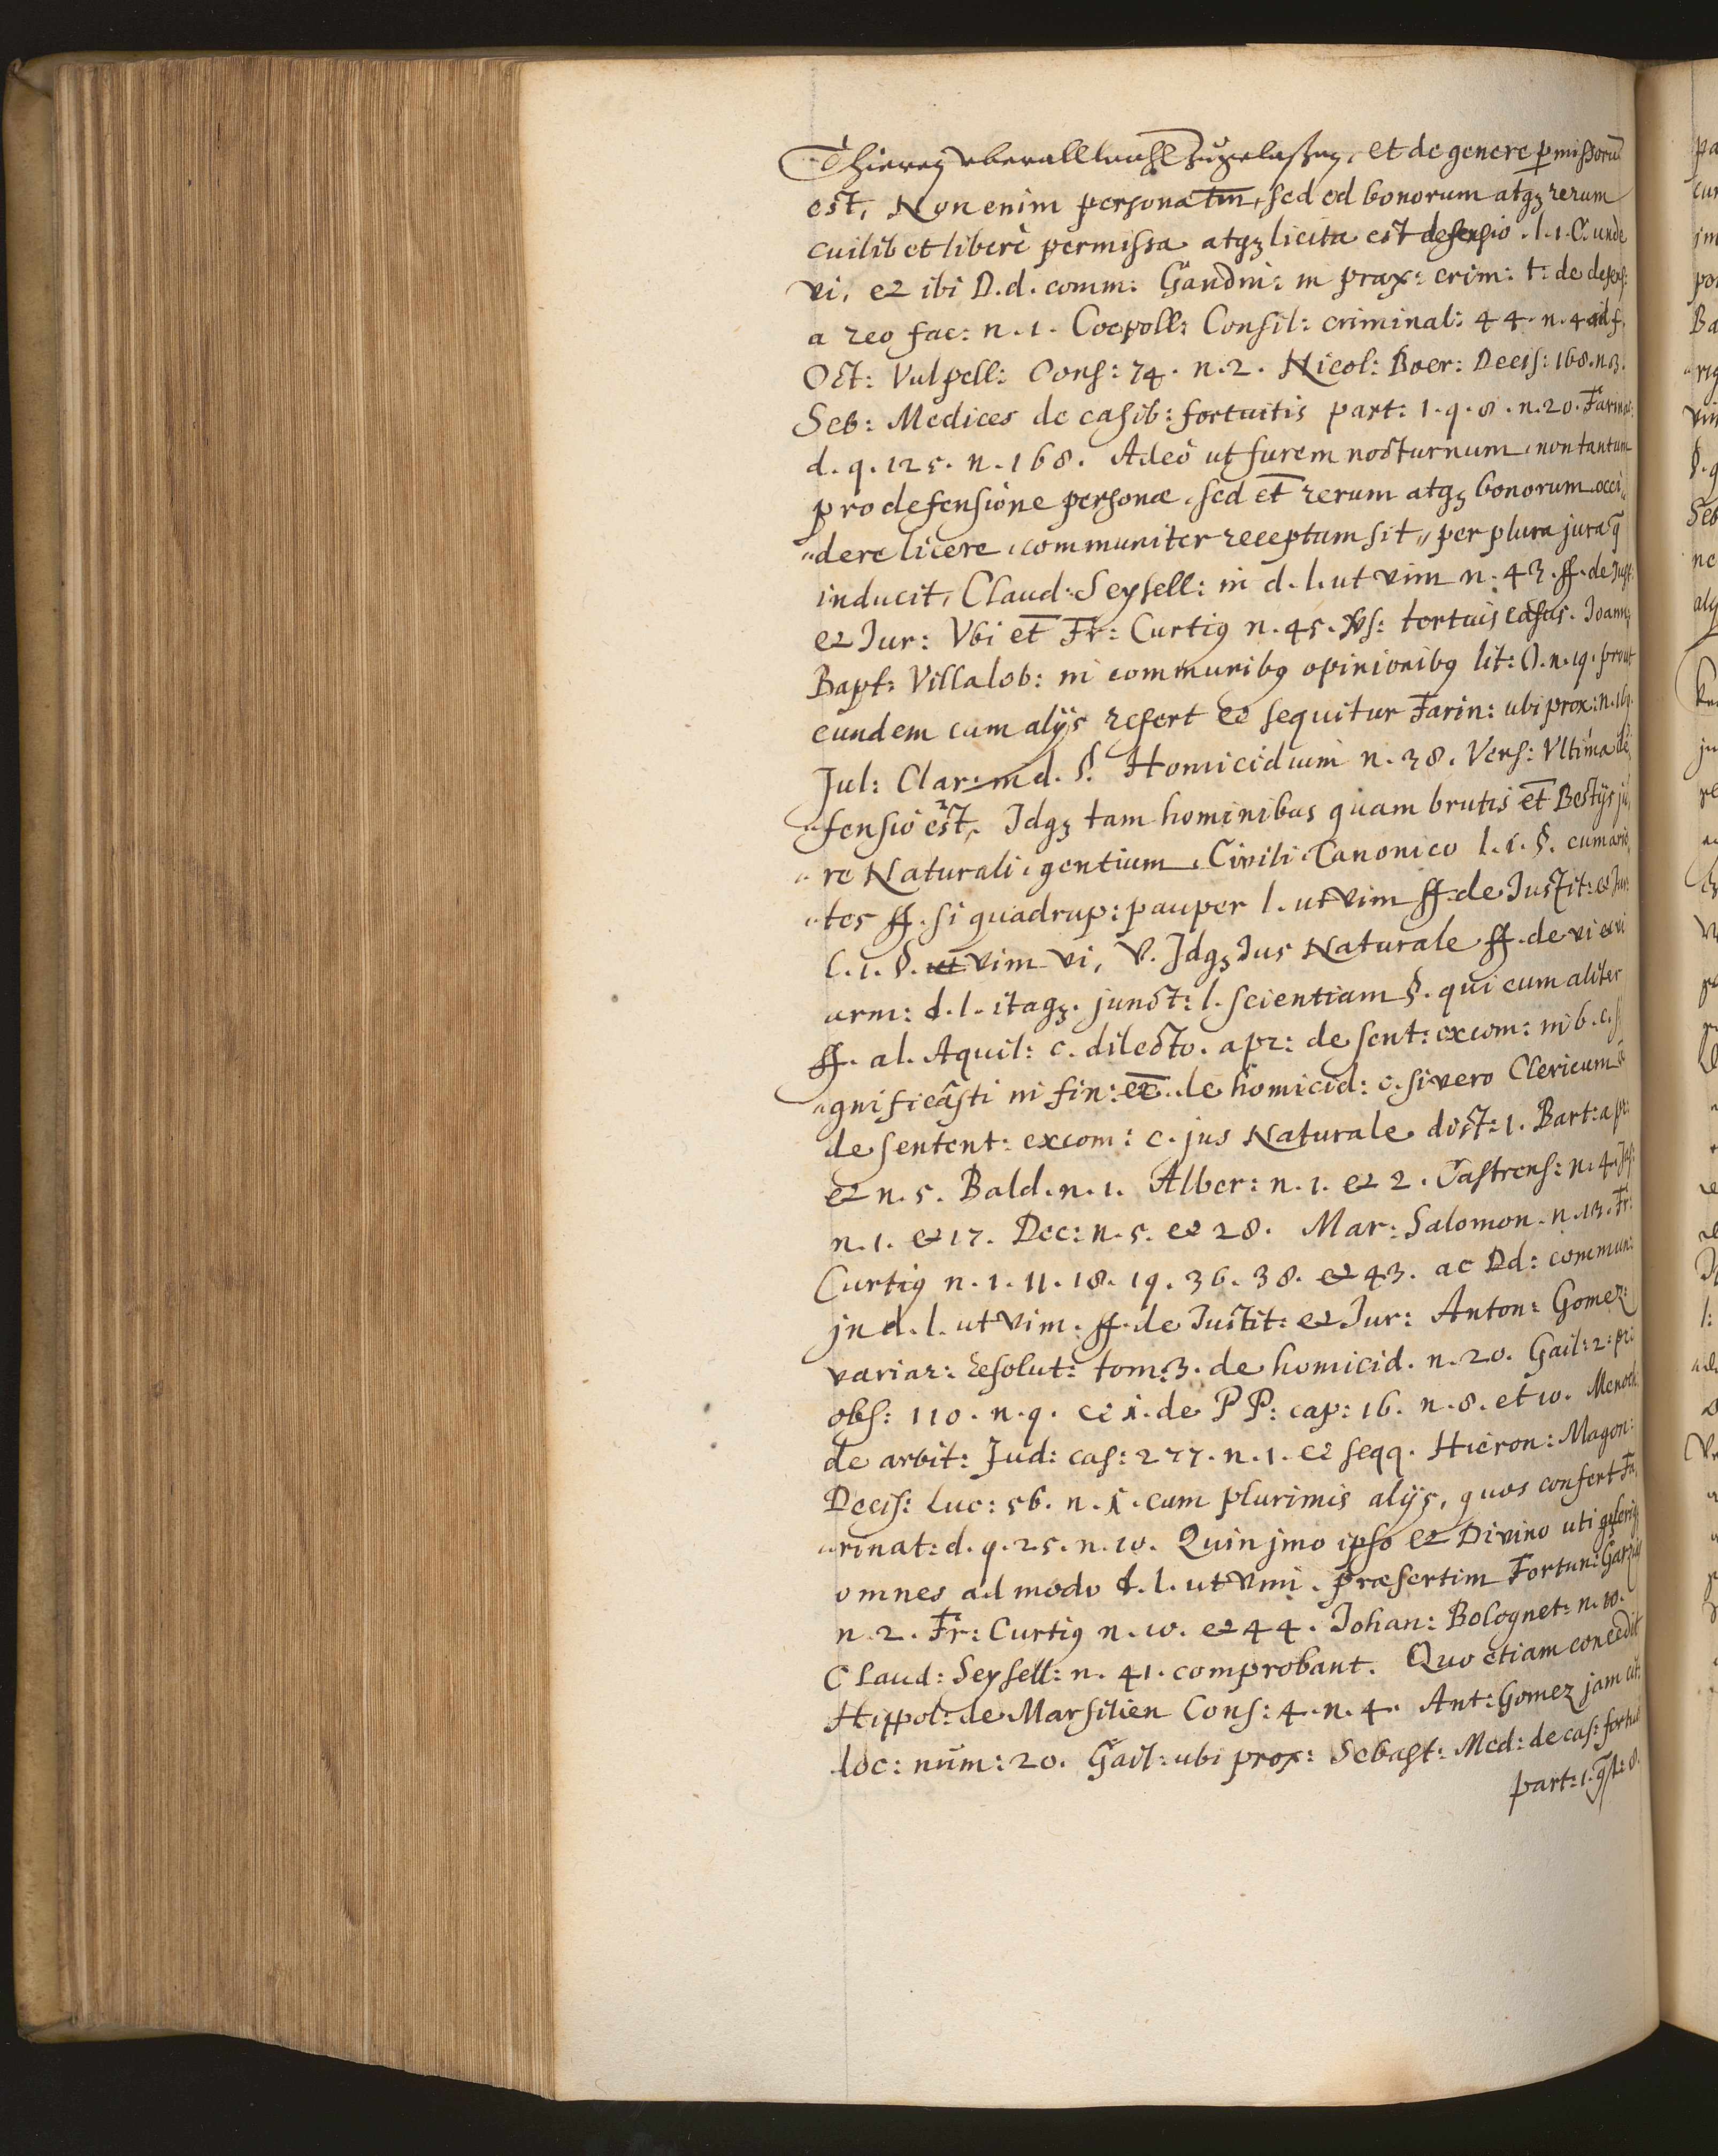 Thieren vberall wohl zugelaßen, et de genere p̱missorū
est, Non enim personæ tm̄, sed ed bonorum atqꝫ rerum
cuilibet liberè permissa atqꝫ licita est defensio. l. 1. C. unde
vi, et ibi D.d. comm: Gandin: in prax: crim: t: de defens:
a reo fac: n. 1. Coepoll: Consil: criminal: 44. n. 4 ad f.
Oct: Vulpell: Cons: 74. n. 2. Nicol: Boer: Decis: 168. n. 3.
Seb: Medices de casib: fortuitis part: 1. q. 8. n. 20. Farinac:
d. q. 125. n. 168. Adeò ut furem nocturnum, non tantum
pro defensione personæ, sed et̄ rerum atqꝫ bonorum occi„
„dere licere, communiter receptum sit, per plura jura q̄
inducit, Claud: Seysell: in d. l. ut vim n. 43. ff. de Just:
et Jur: Vbi et̄ Fr: Curtiꝰ n. 45. Vs: tertuis casus. Joann:
Bapt: Villalob: in communibꝰ opinionibꝰ lit: O. n. 19. prout
eundem cum alijs refert et sequitur Farin: ubi prox: n. 169.
Jul: Clar: in d. §. Homicidium n. 38. Vers: Vltima de„
„fensio est, Idqꝫ tam hominibus quam brutis et̄ Bestijs ju„
„re Naturali, gentium, Civili, Canonico l. 1. §. cum arie„
„tes ff. si quadrup: pauper l. ut vim ff. de Justit: et Jur:
l. 1. §. vim vi, V. Idqꝫ Jus Naturale ff. de vi et vi
arm: d. l. itaqꝫ. junct: l. scientiam §. qui cum aliter
ff. al. Aquil: c. dilecto. a pr: de sent: excom: in 6. c. si„
„gnificâsti in fin: ex̄. de homicid: c. si vero Clericum
de sentent: excom: c. jus Naturale dist: 1. Bart: a pr:
et n. 5. Bald. n. 1. Alber: n. 1. et 2. Castrens: n. 4. Jas:
n. 1. et 17. Dec: n. 5. et 28. Mar: Salomon. n. 13. Fr:
Curtiꝰ n. 1. 11. 18. 19. 36. 38. et 43. ac Dd: commun:
in d. l. ut vim. ff. de Justit: et Jur: Anton: Gomez:
variar: resolut: tom: 3. de homicid. n. 20. Gail: 2. pr:
obs: 110. n. 9. et 1. de P P: cap: 16. n. 8. et 10. Menoch:
de arbit: Jud: cas: 277. n. 1. et seqq. Hieron: Magon:
Decis: Luc: 56. n. 1. cum plurimis alijs, quos confert Fa„
„rinat: d. q. 25. n. 10. Quin jmo ipso et Divino uti
omnes ad modo d. l. ut vim. præsertim Fortun: Garzias
n. 2. Fr: Curtiꝰ n. 10. et 44. Johan: Bolognet: n. 10.
Claud: Seysell: n. 41. comprobant. Quo etiam concedit
Hippol: de Marsilien Cons: 4. n. 4. Ant: Gomez jam cit:
loc: num: 20. Gail: ubi prox: Sebast: Med: de cas: fortuit
part: 1. q̄st: 8.